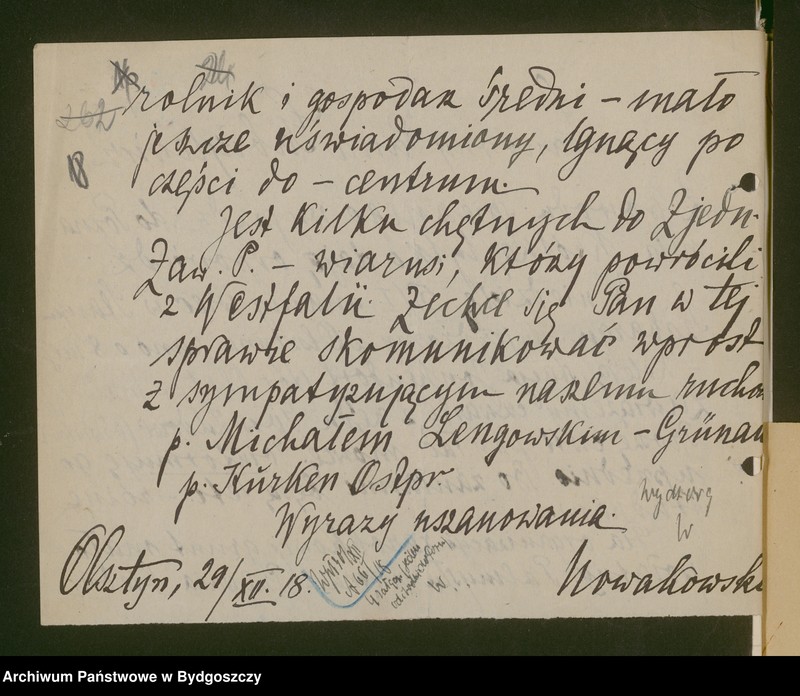 262
18
rolnik i gospodarz średni – mało
jeszcze uświadomiony, lgnący po
części do – centrum.
Jest kilku chętnych do Zjedn.
Zaw. P. – wiarusi, którzy powrócili
z Westfalii. Zechce się Pan w tej
sprawie skomunikować wprost
z sympatyzującym naszemu rucho
p. Michałem Lengowskim – Grünau
p. Kurken Ostpr.
Wyrazy uszanowania.
W
Olsztyn, 29/XII. 18.
Nowakowski
W.
Archiwum Państwowe w Bydgoszczy